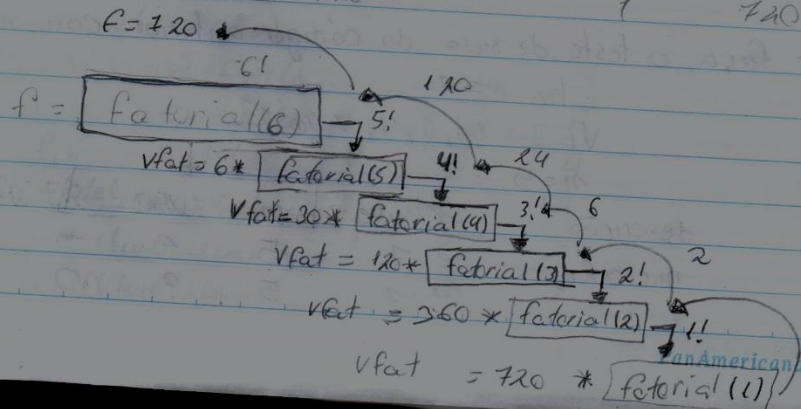 f = 720
720
6!
120
f = fatorial(6)
5!
24
vfat = 6* fatorial(5)
4!
6
vfat = 30* fatorial(4)
3!
2
vfat = 120* fatorial(3)
2!
vfat = 360 * fatorial(2)
1!
PanAmericana
vfat = 720 * fatorial(1)